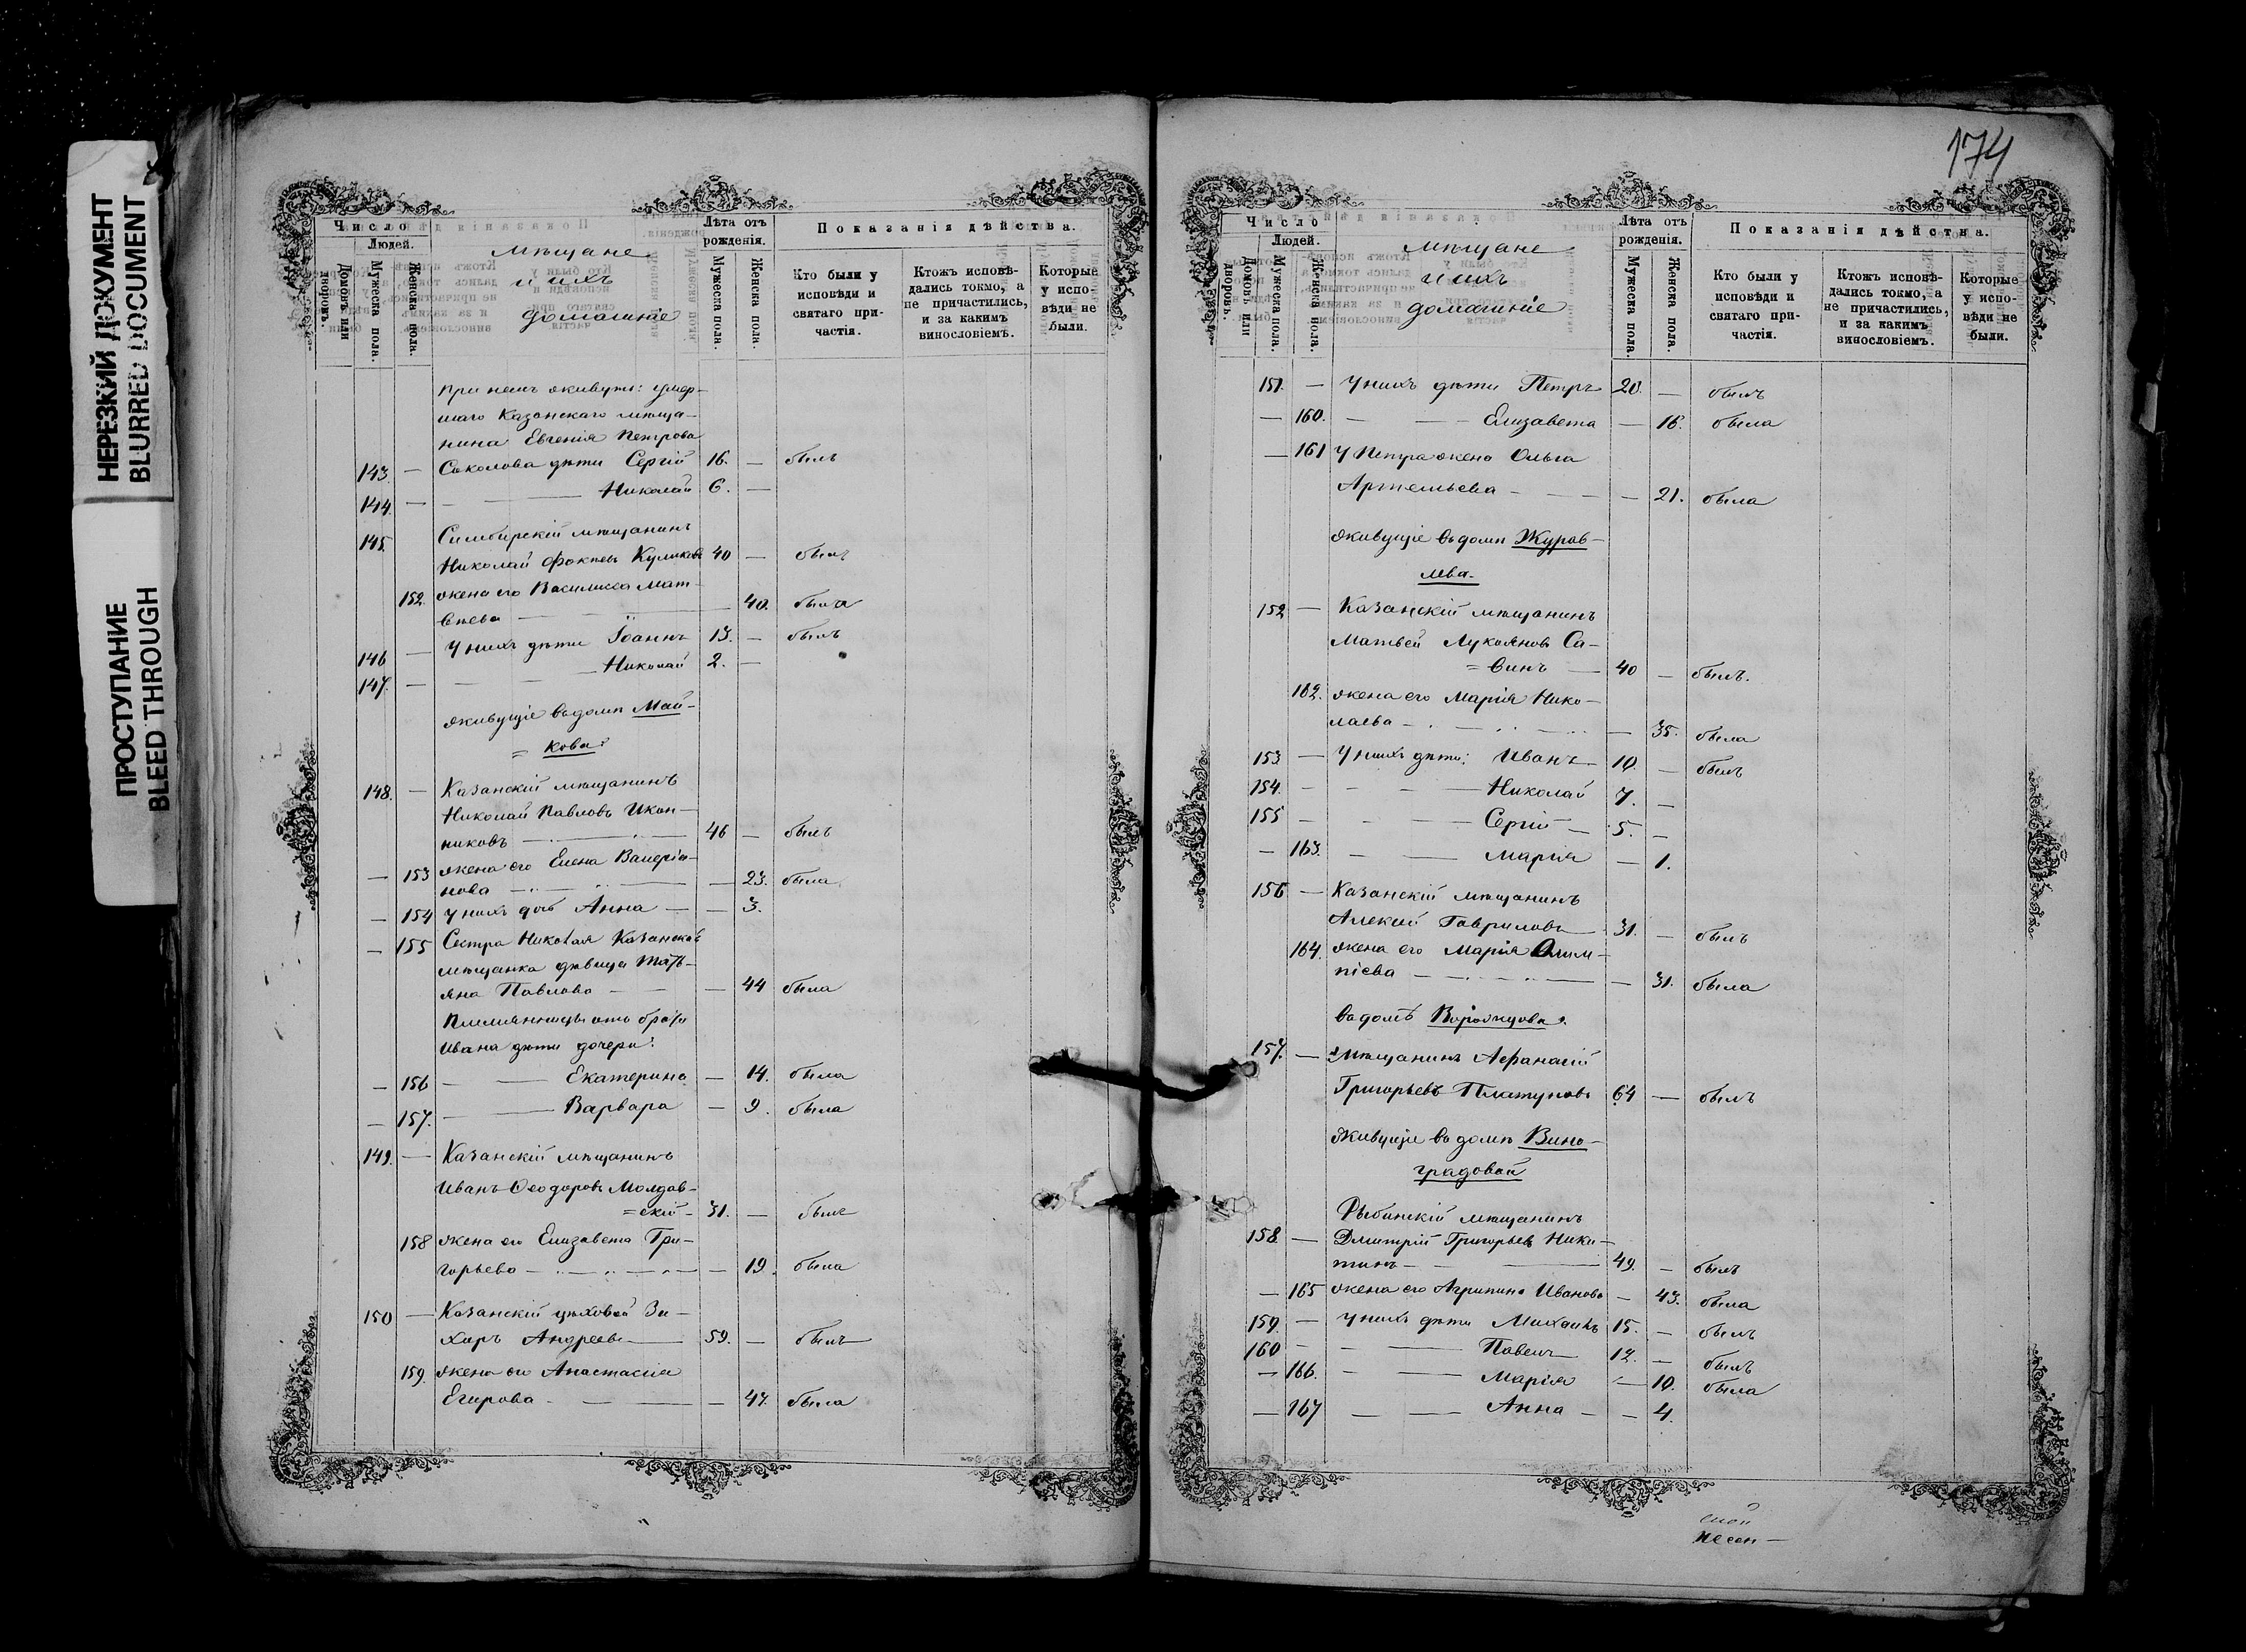 НЕРЕЗКИЙ ДОКУМЕНТ
BLURRED DOCUMENT
ПРОСТУПАНИЕ
BLEED THROUGH
Число
Людей.
Домовъ или дворовъ.
Мужеска пола.
Женска пола.
мѣщане
и ихъ
домашніе
Лѣта отъ рожденія.
Мужеска пола.
Женска пола.
Показанія дѣйства.
Кто были у исповѣди и святаго причастія.
Ктожъ исповѣдались токмо, а не причастились, и за какимъ винословіемъ.
Которые у исповѣди не были.
При немъ живутъ: умер-
шаго Казанскаго мѣща-
нина Евгенія Петрова
143. — Соколова дѣти Сергій 16. — былъ
144. — — Николай 6. —
145. Симбирскій мѣщанинъ
Николай Фокѣевъ Куликовъ 40 — былъ
152. жена его Василисса Мат-
вѣева — 40. была
146 — У нихъ дѣти Іоаннъ 13. — былъ
147. — — Николай 2. —
Живущіе въ домѣ Май-
= кова:
148. — Казанскій мѣщанинъ
Николай Павловъ Икон-
никовъ — 46 — былъ
— 153 жена его Елена Валеріа-
нова — — 23. была
— 154 У нихъ дочь Анна — — 3.
— 155 Сестра Николая Казанская
мѣщанка дѣвица Тать-
яна Павлова — — 44 была
Племянницы отъ брата
Ивана дѣти дочери:
— 156 — Екатерина — 14. была
— 157. — Варвара — 9. была
149. — Казанскій мѣщанинъ
Иванъ Ѳеодоровъ Молдав-
=скій — 31. — былъ
158 жена его Елизавета Гри-
горьева — — 19. была
150 — Казанскій цѣховой За-
харъ Андреевъ — 59. — былъ
159. жена его Анастасія
Егорова — — 47. была
174
Число
Людей.
Домовъ или дворовъ.
Мужеска пола.
Женска пола.
мѣщане
и ихъ
домашніе
Лѣта отъ рожденія.
Мужеска пола.
Женска пола.
Показанія дѣйства.
Кто были у исповѣди и святаго причастія.
Ктожъ исповѣдались токмо, а не причастились, и за какимъ винословіемъ.
Которые у исповѣди не были.
151. — У нихъ дѣти Петръ 20. — былъ
— 160. — Елизавета — 16. была
— 161 У Петра жена Ольга
Артемьева — — 21. была
Живущіе въ домѣ Журав-
лева.
152 — Казанскій мѣщанинъ
Матвей Лукояновъ Са-
= винъ — 40 — былъ.
162. жена его Марія Нико-
лаева — — 35. была
153 — У нихъ дѣти: Иванъ 10. — былъ
154. — — Николай 7. —
155 — — Сергій — 5. —
— 163. — Марія — 1.
156 — Казанскій мѣщанинъ
Алекѣй Гавриловъ 31. — былъ
164. жена его Марія Олим-
піева — — 31. была
въ домѣ Воронцова.
157. — Мѣщанинъ Афанасій
Григорьевъ Платуновъ 64 — былъ
Живущіе въ домѣ Вино-
градовой
Рыбинскій мѣщанинъ
158. — Дмитрій Григорьевъ Ники-
тинъ — 49. — былъ
— 165 жена его Агрипина Иванова — 43. была
159. — У нихъ дѣти Михаилъ 15. — былъ
160 — — Павелъ 12. — былъ
— 166. — Марія — 10. была
— 167 — Анна — — 4.